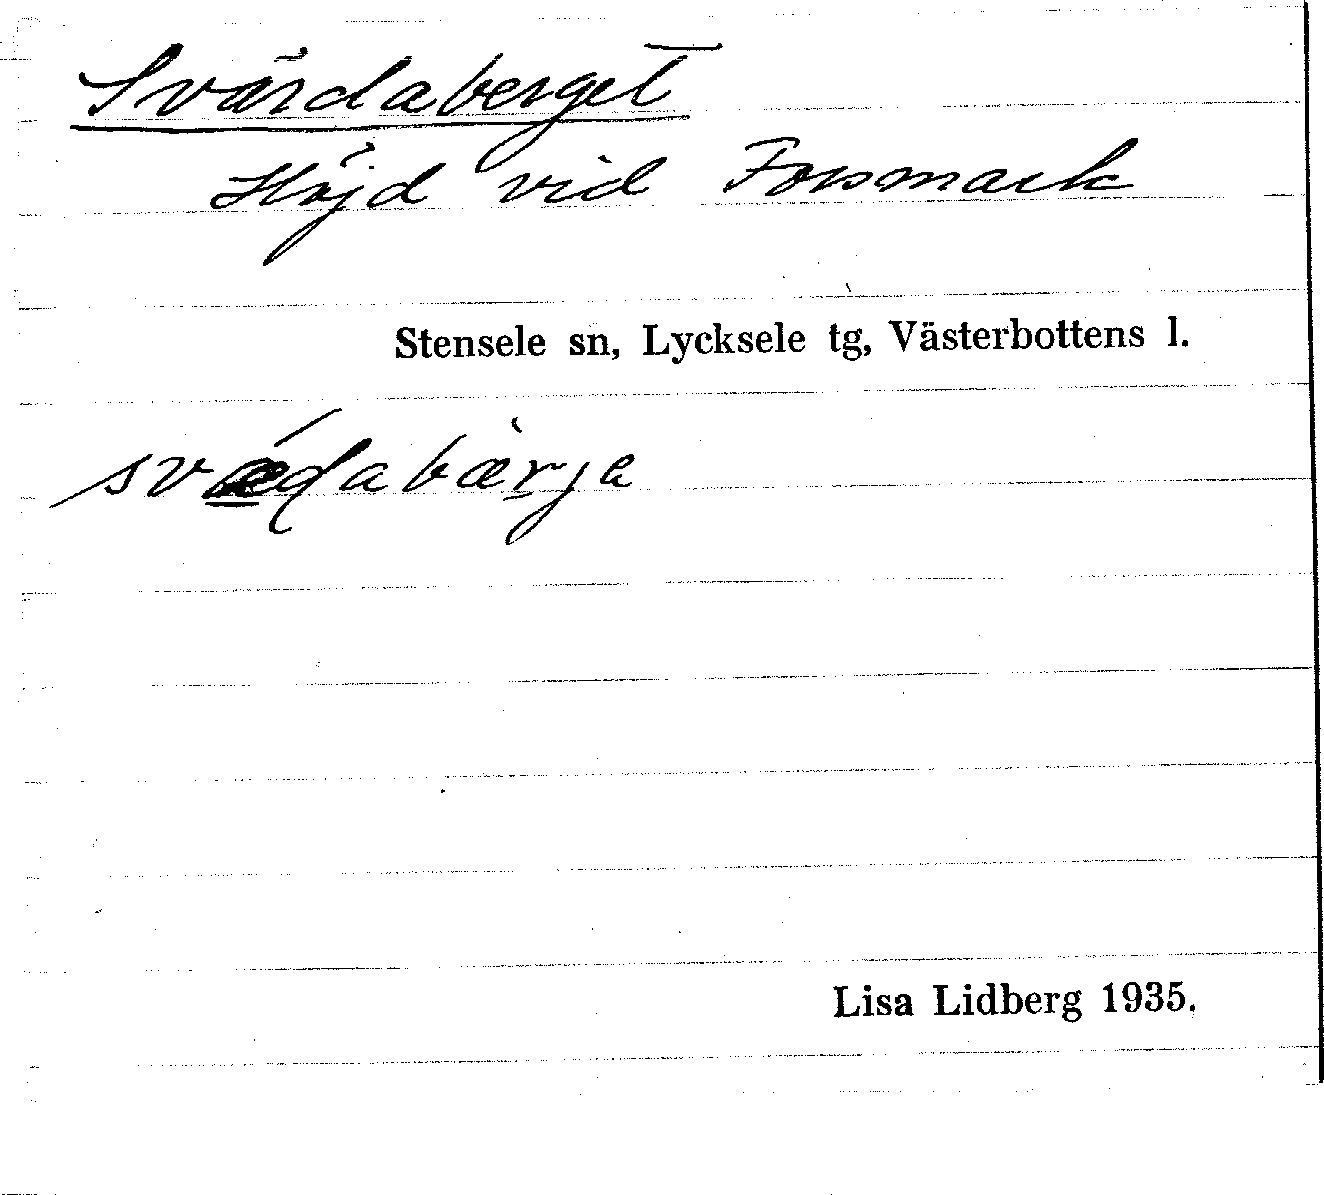 Svärdaberget
Höjd vid Forsmark
Stensele sn, Lycksele tg, Västerbottens l.
svædabærja
Lisa Lidberg 1935.